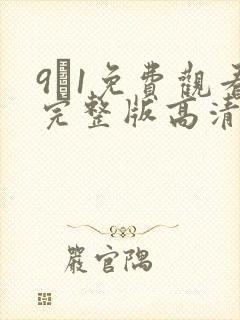 9􏿿1免費觀看
完整版高清
嚴官隅